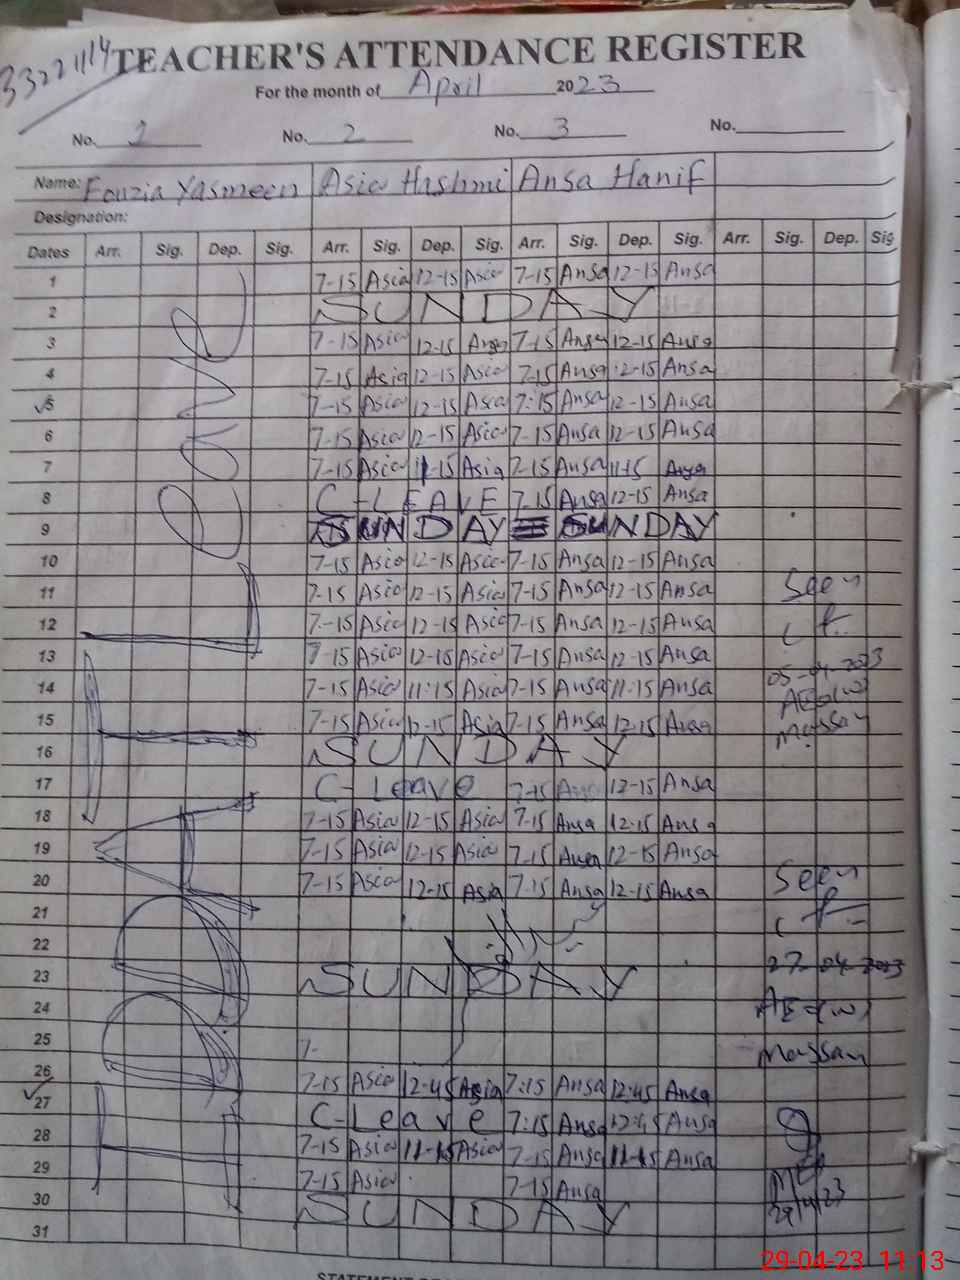 33221114
TEACHER'S ATTENDANCE REGISTER
For the month of April 2023
No. 1 No. 2 No. 3 No.
Name: Fouzia Yasmeen Asia Hashmi Ansa Hanif
Designation:
Dates Arr. Sig. Dep. Sig. Arr. Sig. Dep. Sig. Arr. Sig. Dep. Sig. Arr. Sig. Dep. Sig
1 7-15 Asia 12-15 Asia 7-15 Ansa 12-15 Ansa
2 SUNDAY
3 7-15 Asia 12-15 7-15 Ansa 12-15 Ansa
4 7-15 Asia 12-15 Asia 7-15 Ansa 12-15 Ansa
5 7-15 Asia 12-15 Asia 7:15 Ansa 12-15 Ansa
6 7-15 Asia 12-15 Asia 7-15 Ansa 12-15 Ansa
7 7-15 Asia 11-15 Asia 7-15 Ansa 11-15 Ansa
8 C-LEAVE 7-15 Ansa 12-15 Ansa
9 SUNDAY SUNDAY
10 7-15 Asia 12-15 Asia 7-15 Ansa 12-15 Ansa
11 7-15 Asia 12-15 Asia 7-15 Ansa 12-15 Ansa Seen
12 7-15 Asia 12-15 Asia 7-15 Ansa 12-15 Ansa
13 7-15 Asia 12-15 Asia 7-15 Ansa 12-15 Ansa 05-04-2023
14 7-15 Asia 11:15 Asia 7-15 Ansa 11:15 Ansa AEO(W)
15 7-15 Asia 12-15 Asia 7-15 Ansa 12-15 Ansa Massan
16 SUNDAY
17 C-Leave 7-15 Ans 12-15 Ansa
18 7-15 Asia 12-15 Asia 7-15 Ansa 12-15 Ansa
19 7-15 Asia 12-15 Asia 7-15 Ansa 12-15 Ansa
20 7-15 Asia 12-15 Asia 7-15 Ansa 12-15 Ansa Seen
21
22
23 SUNDAY 27-04-2023
24 AEO(W)
25 7- Massan
26 7-15 Asia 12-45 Asia 7:15 Ansa 12:45 Ansa
27 C-Leave 7:15 Ansa 12:45 Ansa
28 7-15 Asia 11-15 Asia 7-15 Ansa 11-15 Ansa
29 7-15 Asia 7-15 Ansa MEA
30 SUNDAY 29/4/23
31
29-04-23 11:13